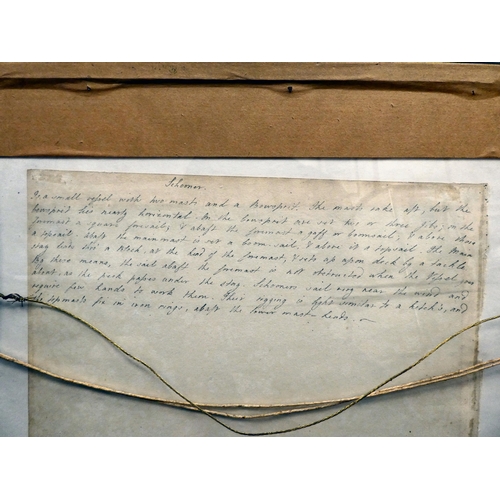 Schooner
Is a small vessel with two masts and a Bowsprit. The masts rake aft, but the
bowsprit lies nearly horizontal. On the bowsprit are set two or three jibs; on the
foremast a square foresail; & abaft the foremast a gaff or boomsail, & above these
a topsail. Abaft the mainmast is set a boom-sail, & above it a topsail. The main
stay leads thro' a block, at the head of the foremast, & sets up upon deck by a tackle.
By these means, the sail abaft the foremast is not obstructed when the vessel goes
about, as the peek passes under the stay. Schooners sail very near the wind and
require few hands to work them. Their rigging is light similar to a ketch's, and
the topmasts fix in iron rings, abaft the lower mast-heads.